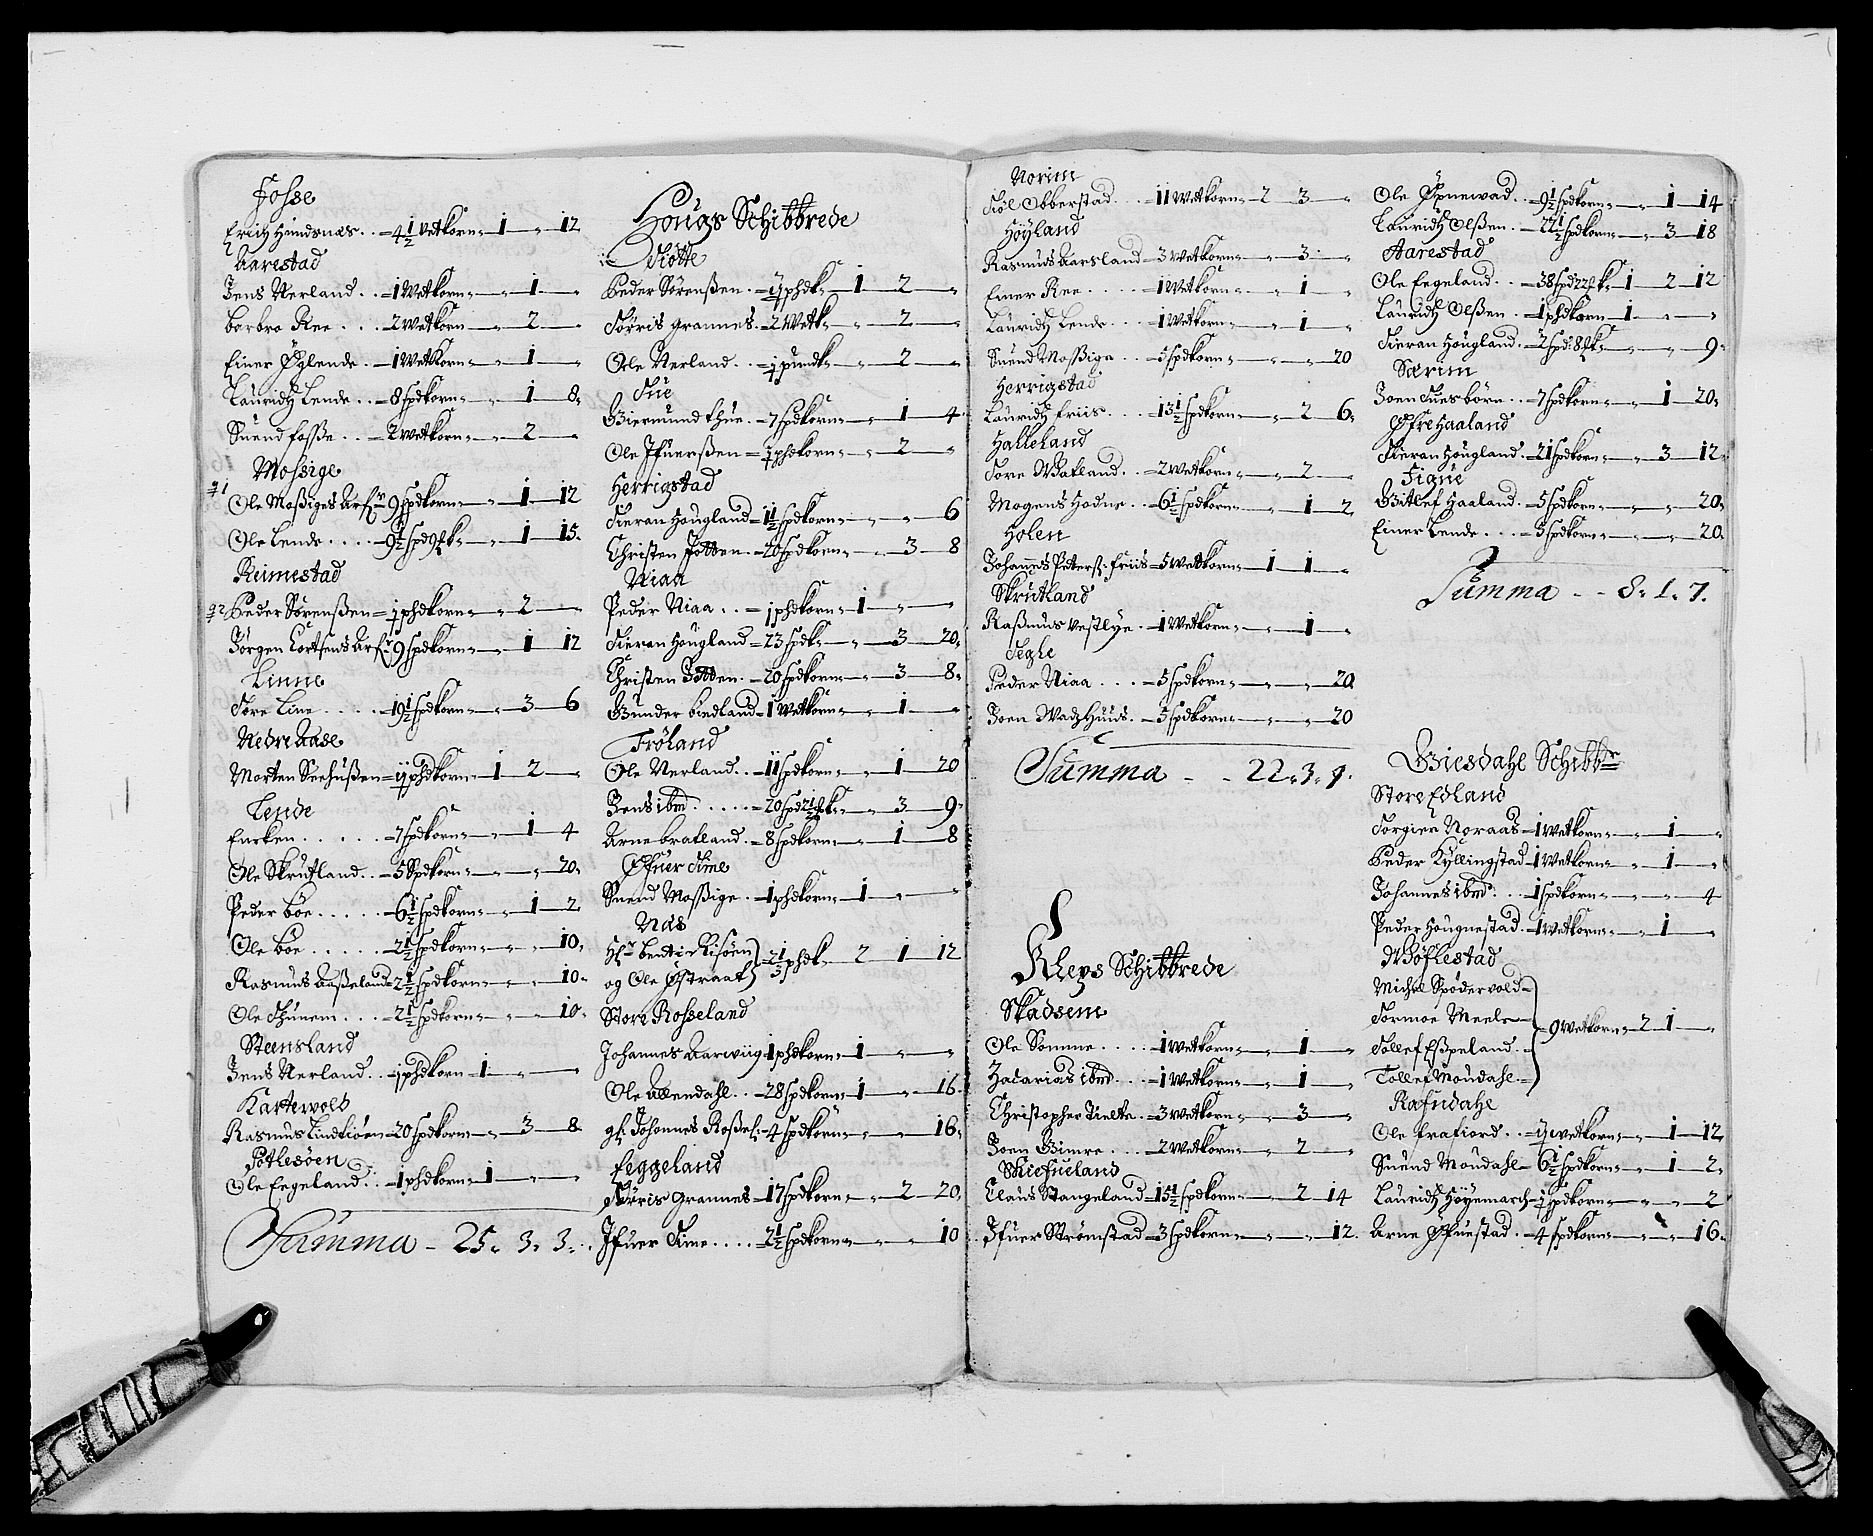 Fosse
Erich Hindsnæs .. - 4½ Vetkorn - 1 - „ 12
Aarestad
Jens Nerland .. - 1 Wetkorn - „ - 1 - „
Borbra Ree ... 2 Wetkorn - „ - 2 - „
Einer Øglende . - 1 Wetkorn - „ - 1 - „
Lauridtz Lende .. - 8 Spdkorn - „ - 1 - 8
Suend Fosse .. - 2 Wetkorn - „ - 2 - „
Mossige
Ole Mossiges Arf - 9 Spdkorn - „ - 1 - 12
Ole Lende .... - 9½ Spd 9 k - „ - 1 - 15
Reimestad
Peder Sørenssen - phdkorn - „ - 2 - „
Jørgen Cortsens Arf 9 Spdkorn - „ - 1 12
Linne
Tore Line ..... - 19½ Spdkorn - „ - 3 - 6
Nedre Aase
Morten Seehussen - phdkorn - 1 - 2 - „
Lende
Encken ...... - 7 Spdkorn - „ - 1 - 4
Ole Skrutland .. - 5 Spdkorn - „ - „ - 20
Peder Bøe ..... - 6½ Spdkorn - „ - 1 - 2
Ole Bøe ...... - 2½ Spdkorn - „ - „ - 10
Rasmus Aasseland - 2½ Spdkorn - „ - „ - 10
Ole Thunem ... - 2½ Spdkorn - „ - „ - 10
Steensland
Jens Nerland .. - 1 phdkorn - 1 - „ - „
Kartevold
Rasmus Lindtiøen - 20 Spdkorn - „ - 3 - 8
Potlesøen
Ole Eegeland . . - 1 phdkorn - 1 - „ - „
Summa - 25. 3. 3.
Hougs Schibbrede
Tiøtte
Peder Sørenssen . - phdk - 1 - 2 - „
Tørris Grannes . - 2 Wetk - „ - 2 - „
Ole Nerland .. - pundk - „ - 2 - „
Tue
Giermund Thue . - 7 Spdkorn - „ - 1 - 4
Ole Ifuerssen - phdkorn - „ - 2 - „
Herrigstad
Tieran Hougland - 1½ Spdkorn - „ - „ - 6
Christen Jotten . - 20 Spdkorn - „ - 3 - 8
Niaa
Peder Niaa .. - 1 phdkorn - 1 - „ - „
Tieran Hougland - 23 Spdk - „ - 3 - 20
Christen Jotten . - 20 Spdkorn - „ - 3 - 8
Gunder Bredland - 1 Wetkorn - „ - 1 - „
Frøland
Ole Nerland .. - 11 Spdkorn - „ - 1 - 20
Jens ibm ..... - 20 Spd k - „ - 3 - 9
Arne Bratland . - 8 Spdkorn - „ - 1 - 8
Øfuer Time
Suend Mossige . - 1 phdkorn - 1 - „ - „
Næs
Hr Bendt Risøen
og Ole Østraat } - phdk - 2 - 1 - 12
Store Rosseland
Johannes Aarwiig - 1 phdkorn - 1 - „ - „
Ole Allendahl .. - 28 Spdkorn - 1 - „ - 16
gl. Johannes Rossel - 4 Spdkorn - „ - „ - 16
Feggeland
Tørris Grannes - 17 Spdkorn - „ - 2 - 20
Ifuer Time .... - 2½ Spdkorn - „ - „ - 10
Norim
Tiøl Obberstad . . - 11 Wetkorn - 2 - 3 - „
Høyland
Rasmus Aarsland - 3 Wetkorn - „ - 3 - „
Einer Ree .... - 1 Wetkorn - „ - 1 - „
Lauridtz Lende .. - 1 Wetkorn - „ - 1 - „
Suend Mossige .. - 5 Spdkorn - „ - „ - 20
Herrigstad
Lauridtz Friis ... - 13½ Spdkorn - „ - 2 - 6
Halleland
Tore Watland .. - 2 Wetkorn - „ - 2 - „
Mogens Hodne .. - 6½ Spdkorn - „ - 1 - 2
Holen
Johannes Peters: Friis - 5 Wetkorn - 1 - 1 - „
Skrutland
Rasmus Vestlye . - 1 Wetkorn - „ - 1 - „
Teghe
Peder Niaa ... - 5 Spdkorn - „ - „ - 20
Joen Wadzhuus . - 5 Spdkorn - „ - „ - 20
Summa - - 22. 3. 9.
Kleps Schibbrede
Skadsem
Ole Somme .... - 1 Wetkorn - „ - 1 - „
Zacarias ibm ... - 1 Wetkorn - „ - 1 - „
Christopher Tielte . - 3 Wetkorn - „ - 3 - „
Joen Gimre .... - 2 Wetkorn - „ - 2 - „
Skiefueland
Claus Stangeland - 15½ Spdkorn - „ - 2 - 14
Ifuer Strømstad - 3 Spdkorn - „ - „ - 12
Ole Opnevad . - 9½ Spdkorn - „ - 1 - 14
Lauridtz Olssen . - 22½ Spdkorn - „ - 3 - 18
Aarestad
Ole Eegeland . . - 38 Spd k - 1 - 2 - 12
Lauridtz Olssen . - 1 phdkorn - 1 - „ - „
Tieran Hougland - 2 Spd 8 k - „ - „ - 9
Særim
Joen Tuesbörn . . - 7 Spdkorn - „ - 1 - 20
Øfre Haaland
Tieran Hougland . - 21 Spdkorn - „ - 3 - 12
Tigue
Gitlef Haaland . - 5 Spdkorn - „ - „ - 20
Einer Lende ... - 5 Spdkorn - „ - „ - 20
Summa - - 8. 1. 7.
Giesdahl Schibbr
Store Edland
Torgier Noraas - 1 Wetkorn - „ - 1 - „
Peder Kyllingstad - 1 Wetkorn - „ - 1 - „
Johannes ibm . . - 1 Spdkorn - „ - „ - 4
Peder Hougnestad . - 1 Wetkorn - „ - 1 - „
Wøflestad
Michel Spødervold
Tormoe Meele
Tollef Esspeland
Tollef Moudahl } - 9 Wetkorn - 2 - 1 - „
Rafndahl
Ole Frafiord .. - Wetkorn - „ - 1 - 12
Suend Moudahl - 6½ Spdkorn - „ - 1 - 2
Lauridtz Høyemarch - Spdkorn - „ - „ - 2
Arne Øfuestad . - 4 Spdkorn - „ - „ - 16